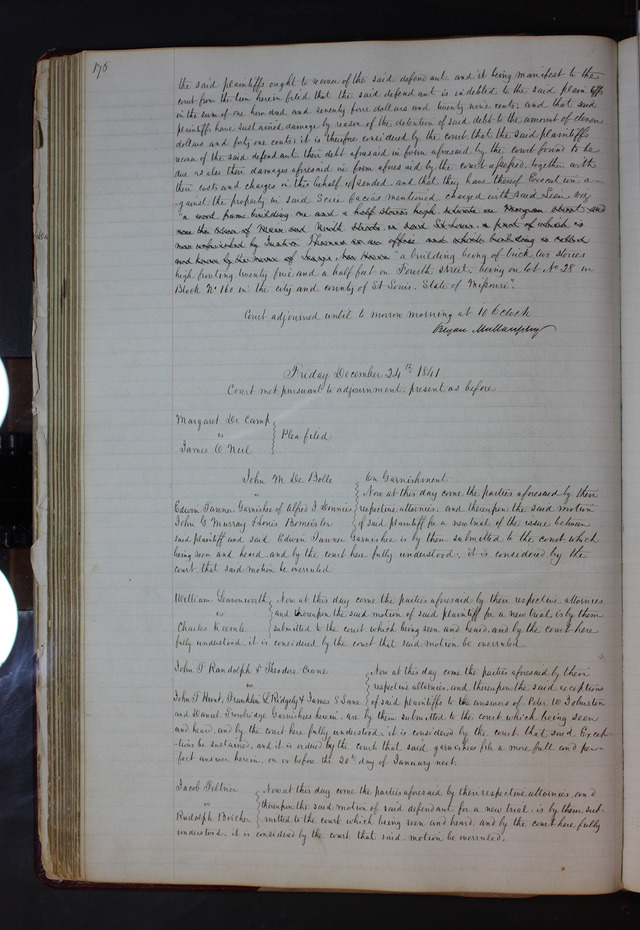 176
the said plaintiffs ought to recover of the said defendant and it being manifest to the
court from the lien herein filed that the said defendant is indebted to the said plaintiffs
in the sum of one hundred and seventy five dollars and twenty nine cents; and that said
plaintiffs have sustained damage by reason of the detention of said debt to the amount of eleven
dollars and forty one cents; it is therefore considered by the court that the said plaintiffs
recover of the said defendant their debt aforesaid in form aforesaid by the court found to be
due as also their damages aforesaid in form aforesaid by the court assessed together with
their costs and charges in this behalf expended, and that they have thereof Execution a-
gainst the property in said Scire facias mentioned charged with said Lien viz
"a wood frame building one and a half stories high situate on Morgan street and
near the corner of Main and North Streets in said St Louis, a part of which is
now occupied by Justice as an office and which building is called
and known by the name of "a building being of brick two stories
high fronting twenty five and a half feet on Fourth street, being on lot No 28 in
Block No 160 in the city and county of St Louis, State of Missouri".
Court adjourned until to morrow morning at 10 O'clock
Bryan Mullanphy
Friday December 24th 1841
Court met pursuant to adjournment. present as before
Margaret De Camp
vs
James O Neil
Plea filed
John M De Bolle
vs
Edwin Tanner Garnishee of Alfred J
John G Murray & Louis Bomeisler
On Garnishment
Now at this day come the parties aforesaid by their
respective attornies, and thereupon the said motion
of said plaintiff for a new trial of the issue between
said plaintiff and said Edwin Tanner Garnishee is by them submitted to the court which
being seen and heard, and by the court here fully understood; it is considered by the
court that said motion be overruled.
William Leavenworth
vs
Charles Keemle
Now at this day come the parties aforesaid by their respective attornies
and thereupon the said motion of said plaintiff for a new trial is by them
submitted to the court which being seen and heard, and by the court here
fully understood it is considered by the court that said motion be overruled.
John T Randolph & Theodore Crane
vs
John T Hunt, Franklin L Ridgely & James S Lane
Now at this day come the parties aforesaid by their
respective attornies, and thereupon the said exceptions
of said plaintiffs to the answers of Peter W Johnston
and Daniel Trowbridge Garnishees herein are by them submitted to the court which being seen
and heard and by the court here fully understood, it is considered by the court that said Excep-
tions be sustained, and it is ordered by the court that said garnishees file a more full and per-
fect answer herein on or before the 20th day of January next.
Jacob Feltner
vs
Rudolph Bircher
Now at this day come the parties aforesaid by their respective attornies, and
thereupon the said motion of said defendant for a new trial is by them sub-
mitted to the court which being seen and heard, and by the court here fully
understood, it is considered by the court that said motion be overruled.